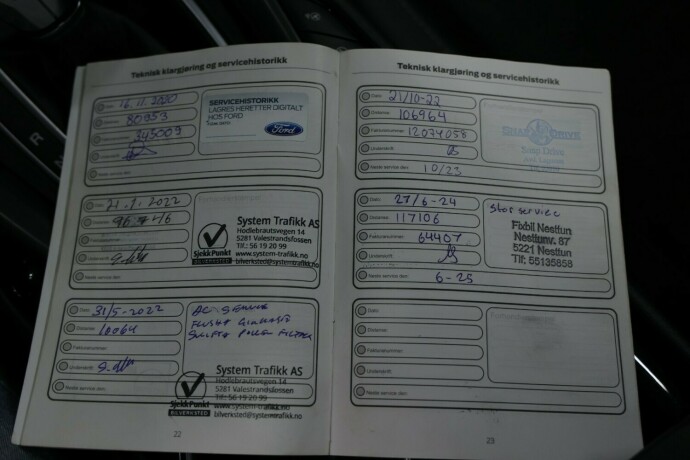 Teknisk klargjøring og servicehistorikk
Dato: 16.11.2020
Distanse: 80953
Fakturanummer: 345009
Underskrift:
Neste service den:
SERVICEHISTORIKK
LAGRES HERETTER DIGITALT
HOS FORD
Ford
Dato: 21.1.2022
Distanse:
Fakturanummer:
Underskrift:
Neste service den:
System Trafikk AS
Hodlebrautsvegen 14
5281 Valestrandsfossen
Tlf.: 56 19 20 99
www.system-trafikk.no
bilverksted@systemtrafikk.no
SjekkPunkt
BILVERKSTED
Dato: 31/5-2022
Distanse: 10064
Fakturanummer:
Underskrift:
Neste service den:
AC SERVICE
System Trafikk AS
Hodlebrautsvegen 14
5281 Valestrandsfossen
Tlf.: 56 19 20 99
www.system-trafikk.no
bilverksted@systemtrafikk.no
SjekkPunkt
BILVERKSTED
22
Teknisk klargjøring og servicehistorikk
Dato: 21/10-22
Distanse: 106964
Fakturanummer: 12074058
Underskrift:
Neste service den: 10/23
SNAP DRIVE
Snap Drive
Dato: 27/6-24
Distanse: 117106
Fakturanummer: 64407
Underskrift:
Neste service den: 6-25
Stor service
Fixbil Nesttun
Nesttunv. 87
5221 Nesttun
Tlf: 55135858
Dato:
Distanse:
Fakturanummer:
Underskrift:
Neste service den:
23